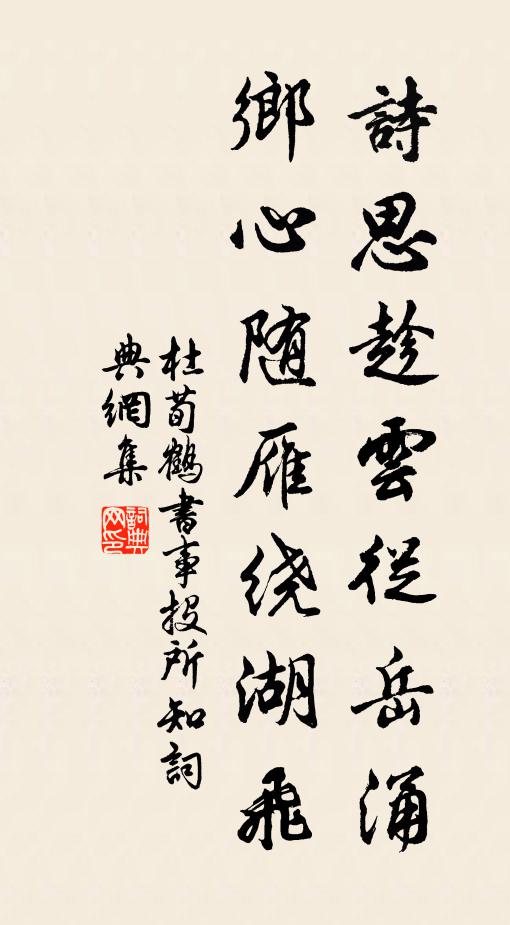 詩思趁雲從岳涌
鄉心随雁绕湖飛
杜荀鶴書事投所知詞
典網集
詞典
网印